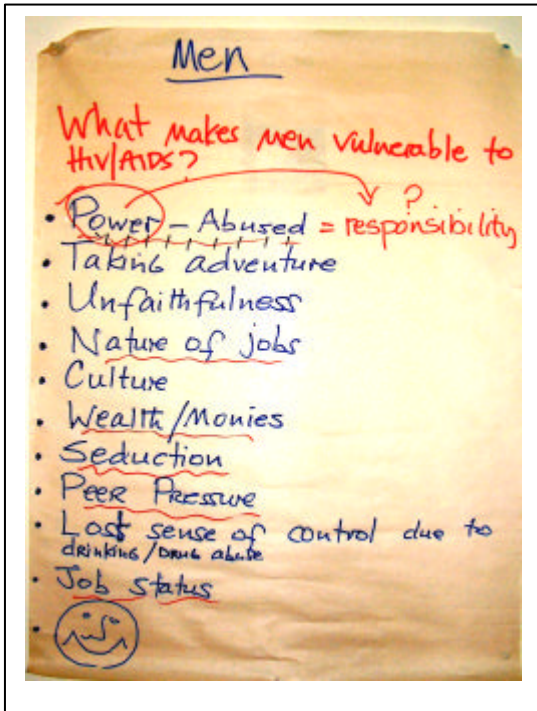 Men
What makes men vulnerable to
HIV/AIDS?
?
• Power – Abused = responsibility
• Taking adventure
• Unfaithfulness
• Nature of jobs
• Culture
• Wealth/Monies
• Seduction
• Peer Pressure
• Lost sense of control due to
drinking/Drug abuse
• Job status